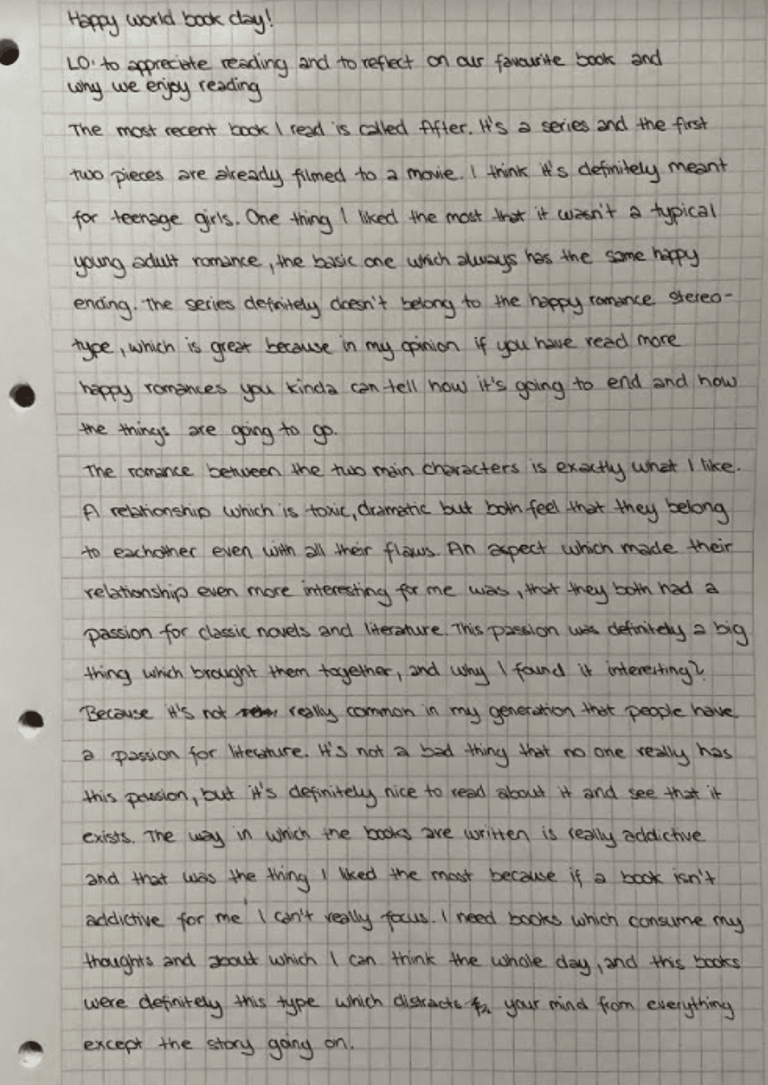 Happy world book day!
LO: to appreciate reading and to reflect on our favourite book and
why we enjoy reading
The most recent book I read is called After. It's a series and the first
two pieces are already filmed to a movie. I think it's definitely meant
for teenage girls. One thing I liked the most that it wasn't a typical
young adult romance, the basic one which always has the same happy
ending. The series definitely doesn't belong to the happy romance stereo-
type, which is great because in my opinion if you have read more
happy romances you kinda can tell how it's going to end and how
the things are going to go.
The romance between the two main characters is exactly what I like.
A relationship which is toxic, dramatic but both feel that they belong
to eachother even with all their flaws. An aspect which made their
relationship even more interesting for me was, that they both had a
passion for classic novels and literature. This passion was definitely a big
thing which brought them together, and why I found it interesting?
Because it's not really common in my generation that people have
a passion for literature. It's not a bad thing that no one really has
this passion, but it's definitely nice to read about it and see that it
exists. The way in which the books are written is really addictive
and that was the thing I liked the most because if a book isn't
addictive for me I can't really focus. I need books which consume my
thoughts and about which I can think the whole day, and this books
were definitely this type which distracts your mind from everything
except the story going on.